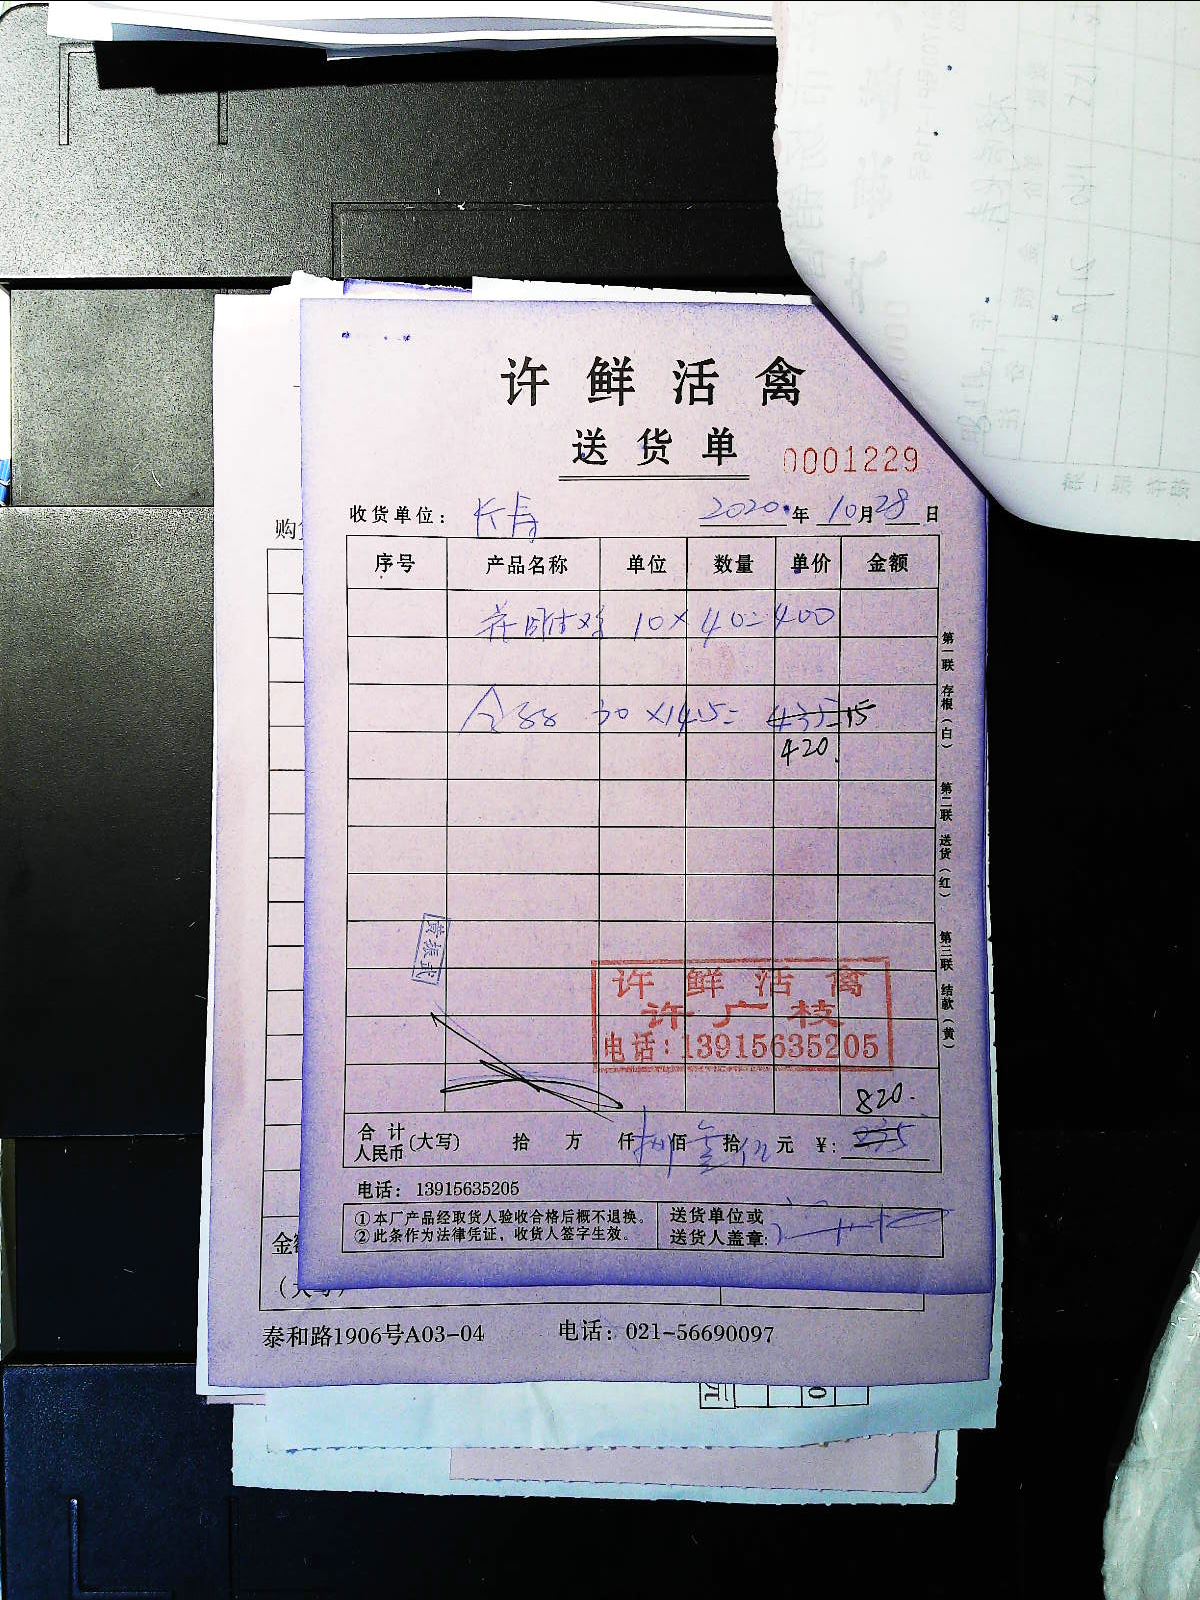 许鲜活禽
送货单 0001229
收货单位: 长寿 2020年10月28日
序号 产品名称 单位 数量 单价 金额
10×40=400
30×14.5= 435-15
420
第一联 存根(白) 第二联 送货(红) 第三联 结款(黄)
黄振武
许鲜活禽
许广枝
电话:13915635205
820.
合计人民币(大写) 拾 万 仟 捌佰 拾 元 ¥:
电话: 13915635205
①本厂产品经取货人验收合格后概不退换。
②此条作为法律凭证,收货人签字生效。
送货单位或
送货人盖章:
泰和路1906号A03-04 电话: 021-56690097